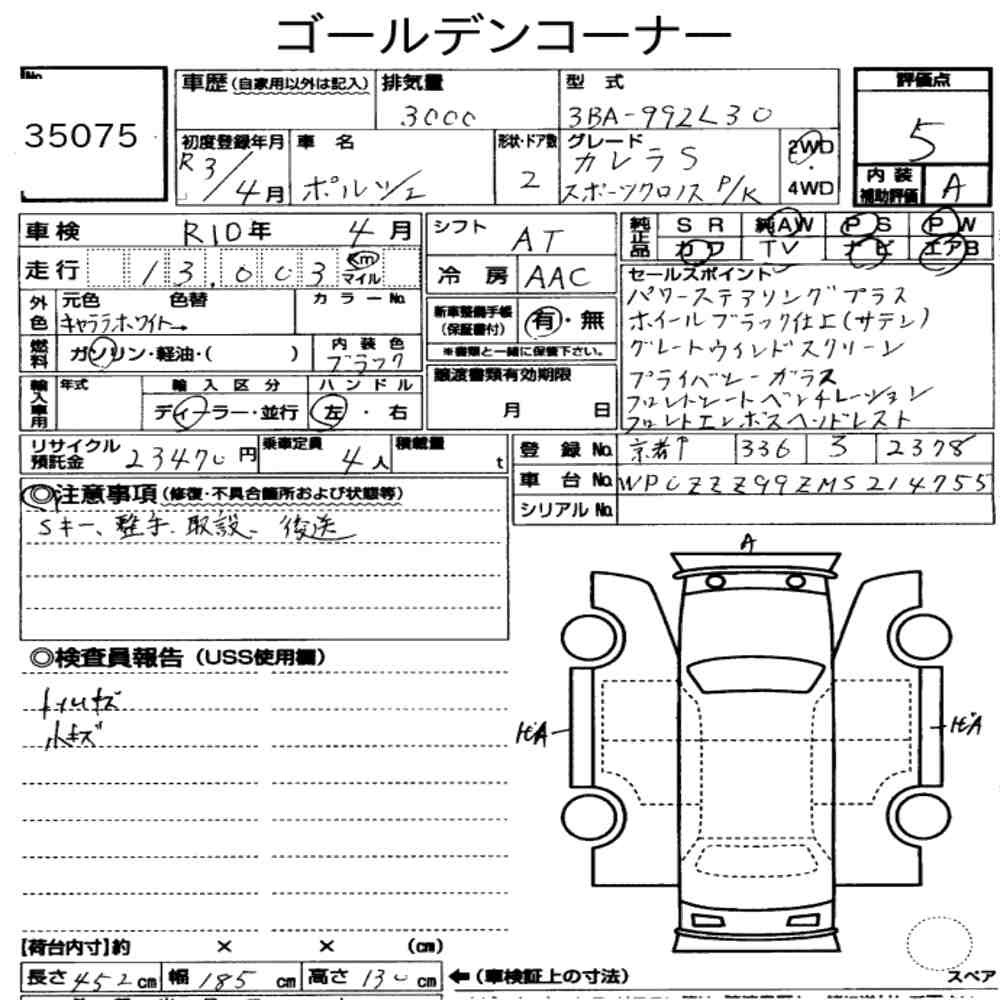 ゴールデンコーナー
No.
35075
車歴(自家用以外は記入) 排気量 型 式 評価点
3000 3BA-992L30 5
初度登録年月 車 名 形状・ドア数 グレード
R3/4月 ポルシェ 2 カレラS 2WD・4WD
スポーツクロノス P/K
内装補助評価 A
車検 R10年 4月 シフト AT
純正品 SR 純AW PS PW
カワ TV ナビ エアB
走行 13,003 km マイル 冷房 AAC
セールスポイント
パワーステアリングプラス
ホイールブラック仕上(サテン)
グレートウィンドスクリーン
プライバシーガラス
フロントシートベンチレーション
フロントエンボスヘッドレスト
外色 元色 色替 カラーNo.
キャララホワイト→
新車整備手帳(保証書付) 有・無
※書類と一緒に保管下さい。
燃料 ガソリン・軽油・( ) 内装色 ブラック
譲渡書類有効期限
月 日
輸入車用 年式 輸入区分 ハンドル
ディーラー・並行 左・右
リサイクル預託金 23470円 乗車定員 4人 積載量 t
登録No. 京都 336 ろ 2378
車台No. WP0ZZZ99ZMS214755
シリアルNo.
◎注意事項(修復・不具合箇所および状態等)
Sキー、整手、取説、後送
A
◎検査員報告(USS使用欄)
トメリキズ
小キズ
ﾋﾋﾞA
ﾋﾋﾞA
【荷台内寸】約 × × (cm)
長さ 452cm 幅 185cm 高さ 130cm ←(車検証上の寸法)
スペア